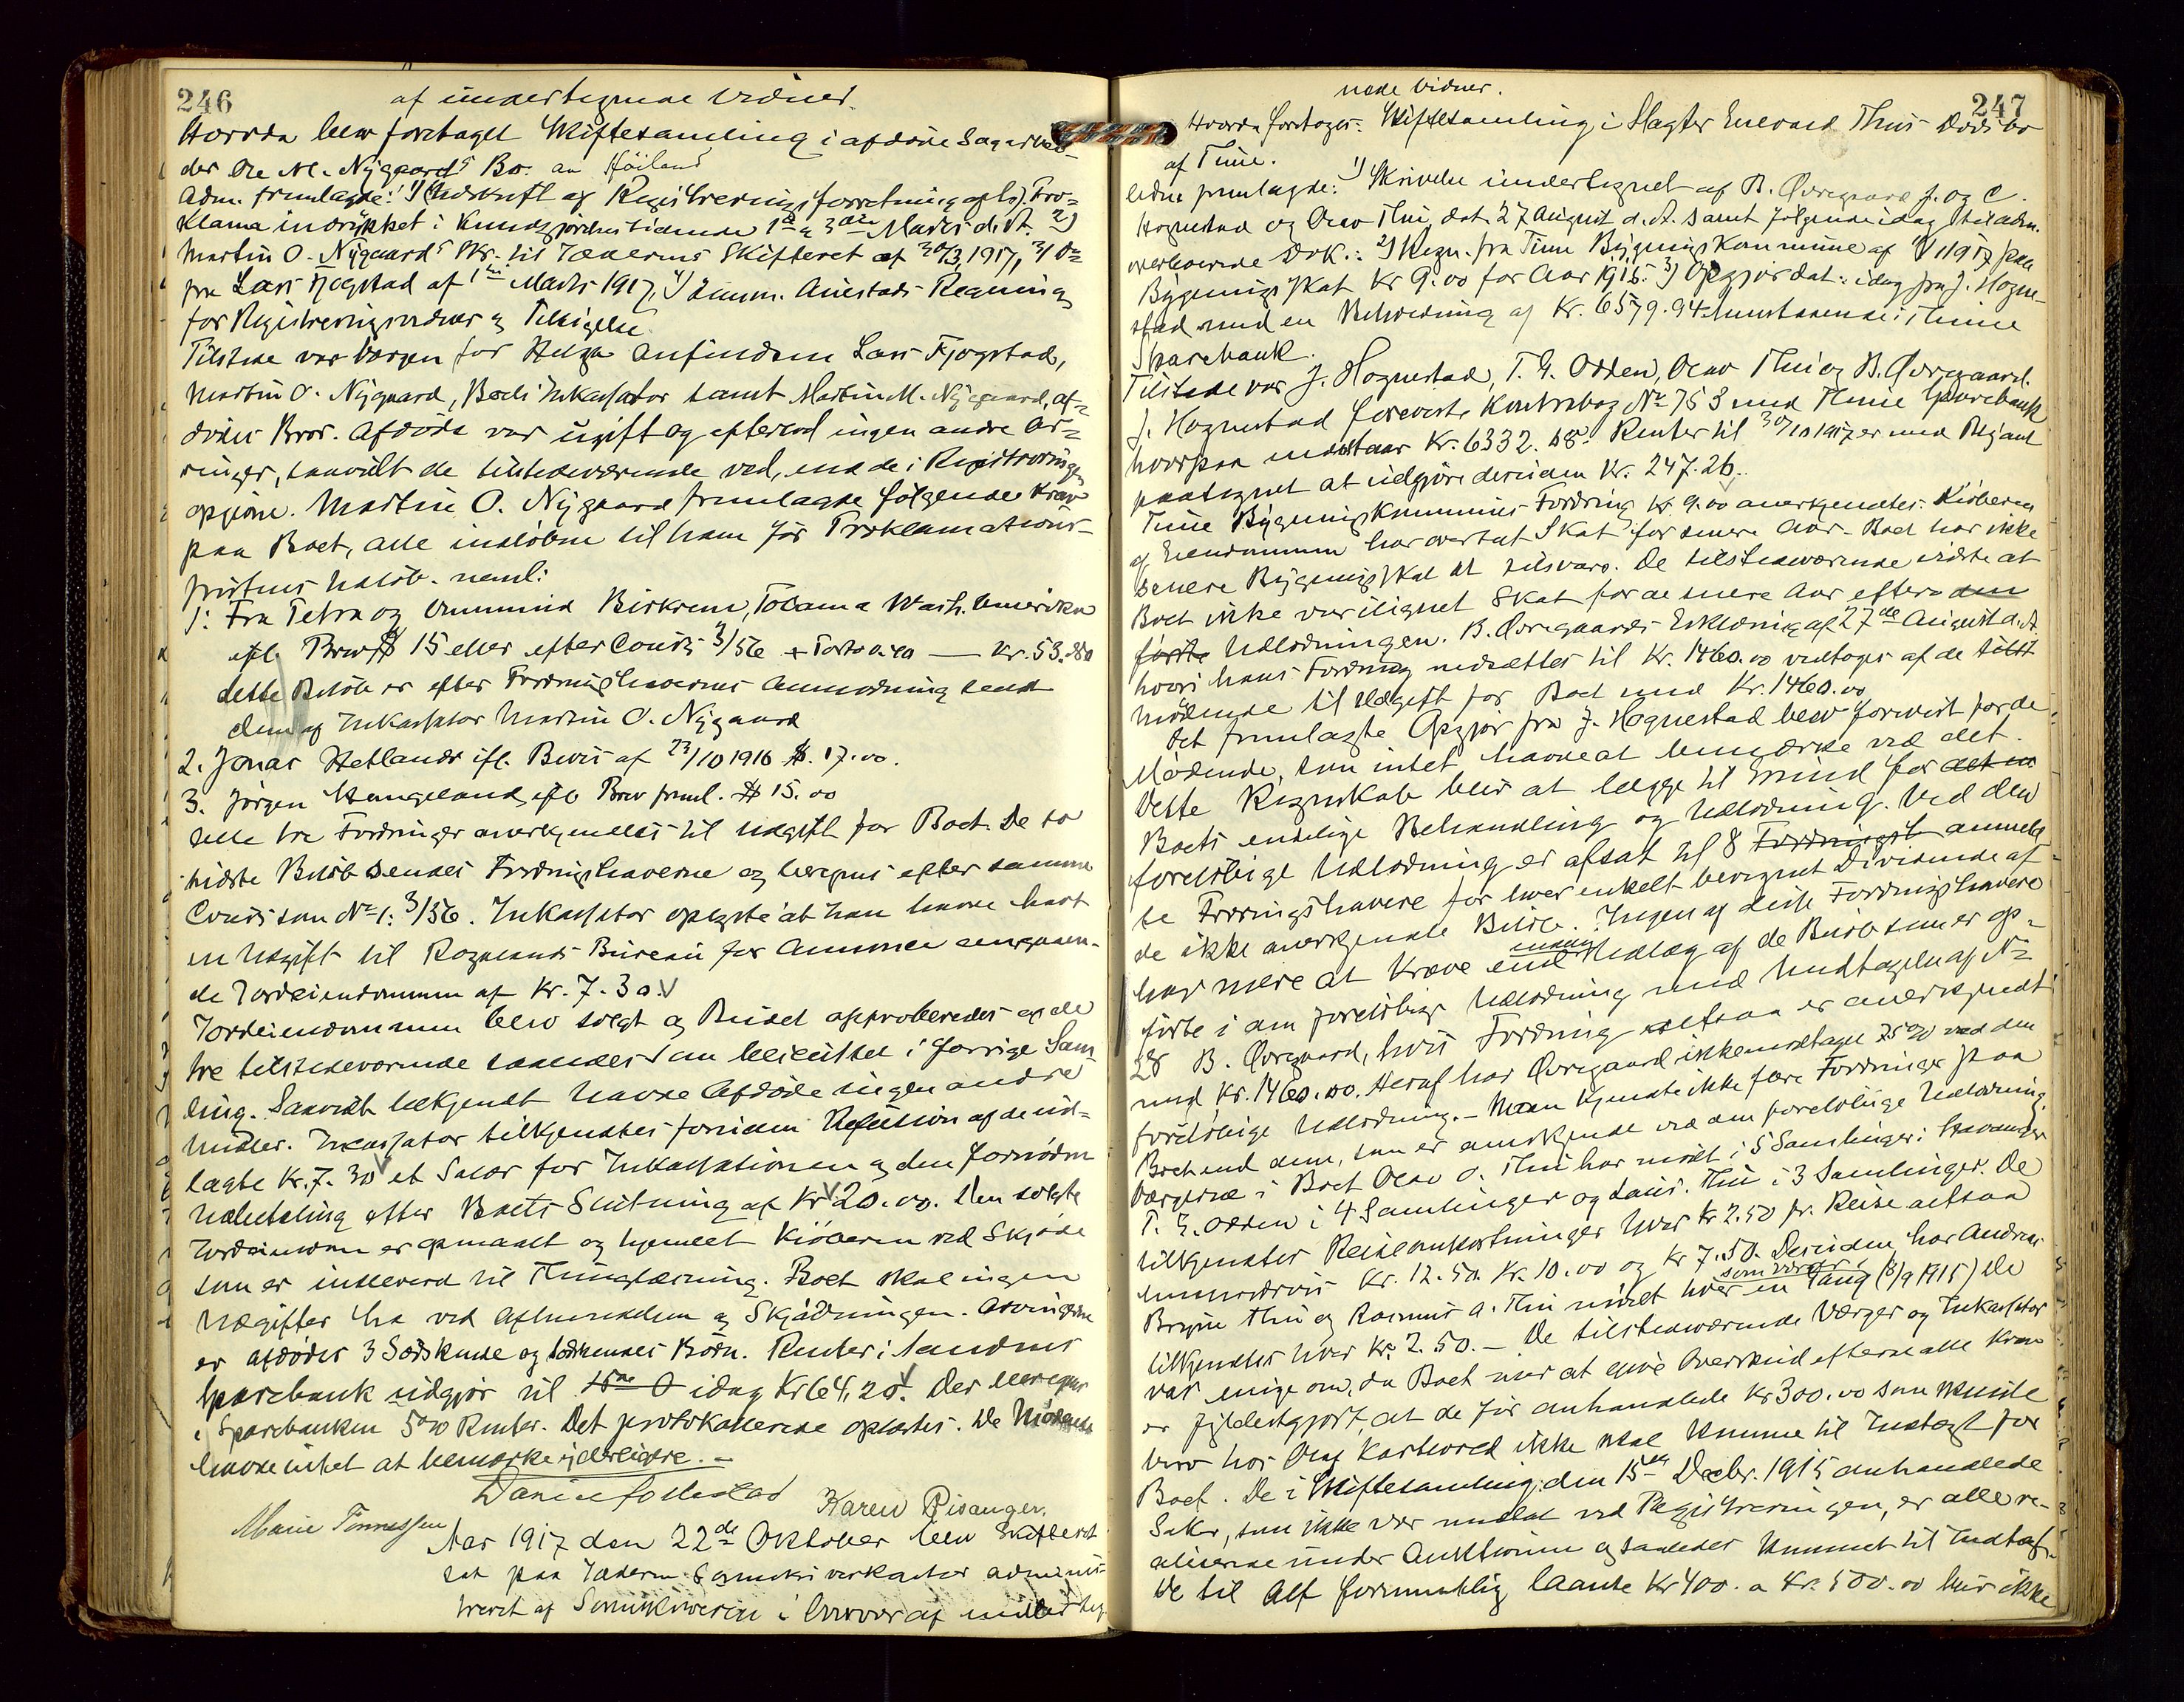 246
af undertegnede Vidner.
Hvorda blev foretaget Skiftesamling i afdøde Sagarbei-
der Ole M. Nygaards Bo. av Høiland
Adm. fremlagde: 1) Udskrift af Registreringsforretning opl. Pro-
klama indrykket i Kundgjørelsestidende 1ste & 3die Marts d. A. 2)
Martin O. Nygaards Skr. til Jæderens Skifteret af 30/3 1917, 3) Do
fra Lars Fjogstad af 1ste Marts 1917, 4) Lensm. Auestads Regning
for Registreringsvidner og Tilsigelse.
Tilstede var Værgen for Helga Anfindsen Lars Fjogstad,
Martin O. Nygaard, Boets Inkassator samt Martin M. Nygaard, af-
dødes Bror. Afdøde var ugift og efterlod ingen andre Ar-
vinger, saavidt de tilstedeværende ved, end de i Registreringen
opgivne. Martin O. Nygaard fremlagde følgende Krav
paa Boet, alle indløbne til ham før Proklamations-
fristens Udløb. neml:
1: Fra Petra og Ommund Birkrem, Tolama Wash. Amerika
ifl. Brev $ 15 eller efter Cours 3/56 + Porto 0.40 — Kr. 53.80
dette Beløb er efter Fordringshavernes Anmodning sendt
dem af Inkassator Martin O. Nygaard
2. Jonas Hetlands ifl. Bevis af 23/10 1916 $. 17.00.
3. Jørgen Hengeland, ifl. Brev freml. $ 15.00
Alle tre Fordringer anerkjendtes til Udgift for Boet. De to
sidste Beløb sendes Fordringshaverne og beregnes efter samme
Cours som No 1: 3/56. Inkassator oplyste at han havde havt
en Udgift til Rogalands Bureau for Annonce angaaen-
de Jordeiendommen af Kr. 7.30.
Jordeiendommen blev solgt og Budet approberedes af de
tre tilstedeværende saaledes som besluttet i forrige Sam-
ling. Saavidt bekjendt havde Afdøde ingen andre
Midler. Inkassator tilkjendtes foruden Refusion af de ud-
lagte Kr. 7.30 et Salær for Inkassationen og den fornødne
Udbetaling efter Boets Slutning af Kr. 20.00. Den solgte
Jordeiendom er opmaalt og hjemlet Kjøberen ved Skjøde
som er indleveret til Thinglæsning. Boet skal ingen
Udgifter ha ved Afhændelsen og Skjødningen. Arvingerne
er afdødes 3 Sødskende og Sødskendes Børn. Renter i Sandnes
Sparebank udgjør til idag Kr 64,20. Der beregnes
i Sparebanken 5% Renter. Det protokollerede oplæstes. De Mødende
havde intet at bemærke yderligere. —
Daniel Follestad
Marie Tønnessen Karen Risanger.
Aar 1917 den 22de Oktober blev Skifteret
sat paa Jæderens Sorenskriverkontor admini-
streret af Sorenskriveren i Overvær af underteg-
247
nede Vidner.
Hvorda foretoges: Skiftesamling i Slagter Enevald Thus Dødsbo
af Time.
Adm. fremlagde: 1) Skrivelse undertegnet af B. Øvregaard, J. og E.
Hognestad og Olav Thu, dat. 27 August d. A. samt følgende idag til adm.
overleverede Dok.: 2) Regn. fra Time Bygningskommune af 1917 paa
Bygningsskat Kr 9.00 for Aar 1915. 3) Opgjør dat. idag fra J. Hogne-
stad med en Beholdning af Kr. 6579.94 henstaaende i Thime
Sparebank.
Tilstede var J. Hognestad, T. G. Odden, Olav Thu og B. Øvregaard.
J. Hognestad foreviste Kontrabog No 753 med Thime Sparebank
hvorpaa indestaar Kr. 6332.68. Renter til 30/10 1917 er med Blyant
paategnet at udgjøre desuden Kr. 247.26.
Time Bygningskommunes Fordring Kr 9.00 anerkjendtes. Kjøberen
af Eiendommen har overtat Skat for senere Aar. Boet har ikke
senere Bygningsskat at tilsvare. De tilstedeværende vidste at
Boet ikke var ilignet Skat for de senere Aar efter den
første Udlodningen. B. Øvregaards Erklæring af 27de August d. A.
hvori hans Fordring nedsættes til Kr. 1460.00 vedtoges af de
mødende til Udgift for Boet med Kr. 1460.00
Det fremlagte Opgjør fra J. Hognestad blev forevist for de
Mødende, som intet havde at bemærke ved det.
Dette Regnskab blir at lægge til Grund for det en
Boets endelige Behandling og Udlodning. Ved den
foreløbige Udlodning er afsat til 8 Fordringsh anmeld
te Fordringshavere for hver enkelt beregnet Dividende af
de ikke anerkjendte Beløb. Ingen af disse Fordringshavere
har mere at kræve end Udlæg af de Beløb som er op-
førte i den foreløbige Udlodning med Undtagelse af No
28 B. Øvregaard, hvis Fordring altsaa er anerkjendt
med Kr. 1460.00. Heraf har Øvregaard ikke modtaget 75% ved den
foreløbige Udlodning. — Man kjendte ikke flere Fordringer paa
Boet end dem, som er anerkjendte ved den foreløbige Udlodning.
Værgerne i Boet Olav O. Thu har mødt i 5 Samlinger i Stavanger
T. G. Odden i 4 Samlinger og Laur. Thu i 3 Samlinger. De
tilkjendtes Reiseomkostninger hver Kr 2.50 pr. Reise altsaa
henholdsvis Kr. 12.50. Kr. 10.00 og Kr 7.50. Desuden har Andreas
Bryne Thu og Rasmus A. Thu mødt hver som værger en Gang (8/9 1915) De
tilkjendtes hver Kr. 2.50. — De tilstedeværende Værger og Inkassator
var enige om, da Boet ser at give Overskud efterat alle Krav
er fyldestgjort, at de før omhandlede Kr 300.00 som skulde
bero hos Olaf Kartevold ikke skal komme til Indtægt for
Boet. De i Skiftesamling den 15de Decbr. 1915 omhandlede
Saker, som ikke var medtat ved Registreringen, er alle re-
aliserede under Auktionen og saaledes kommet til Indtægt.
De til Alf formentlig laante Kr 400. a Kr. 500.00 blir ikke